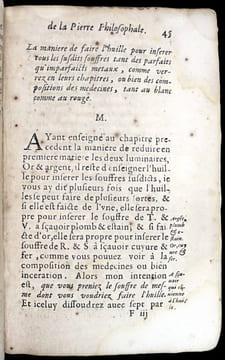 de la Pierre Philosophale. 45
La maniere de faire l'huille pour inserer
tous les susdits souffres tant des parfaits
qu'imparfaicts metaux, comme ver-
rez en leurs chapitres, ou bien des com-
positions des medecines, tant au blanc
comme au rouge.
M.
AYant enseigné au chapitre pre-
cedent la maniere de reduire en
premiere matiere les deux luminaires,
Or & argent, il reste d'enseigner l'huil-
le pour inserer les souffres susdicts, ie
vous ay dit plusieurs fois que l'huil-
le se peut faire de plusieurs sortes, &
si elle est faicte de l'vne, elle sera pro-
pre pour inserer le souffre de T. &
V. a sçauoir plomb & estain, & si fai-
cte d'or, elle sera propre pour inserer le
souffre de R. & S à sçauoir cuyure &
fer, comme vous pouuez voir à la
composition des medecines ou bien
inceration. Alors mon intention
est, que vous preniez le souffre de mes-
me dont vous voudriez faire l'huille.
Et iceluy dissoudrez auec sept par
F iij